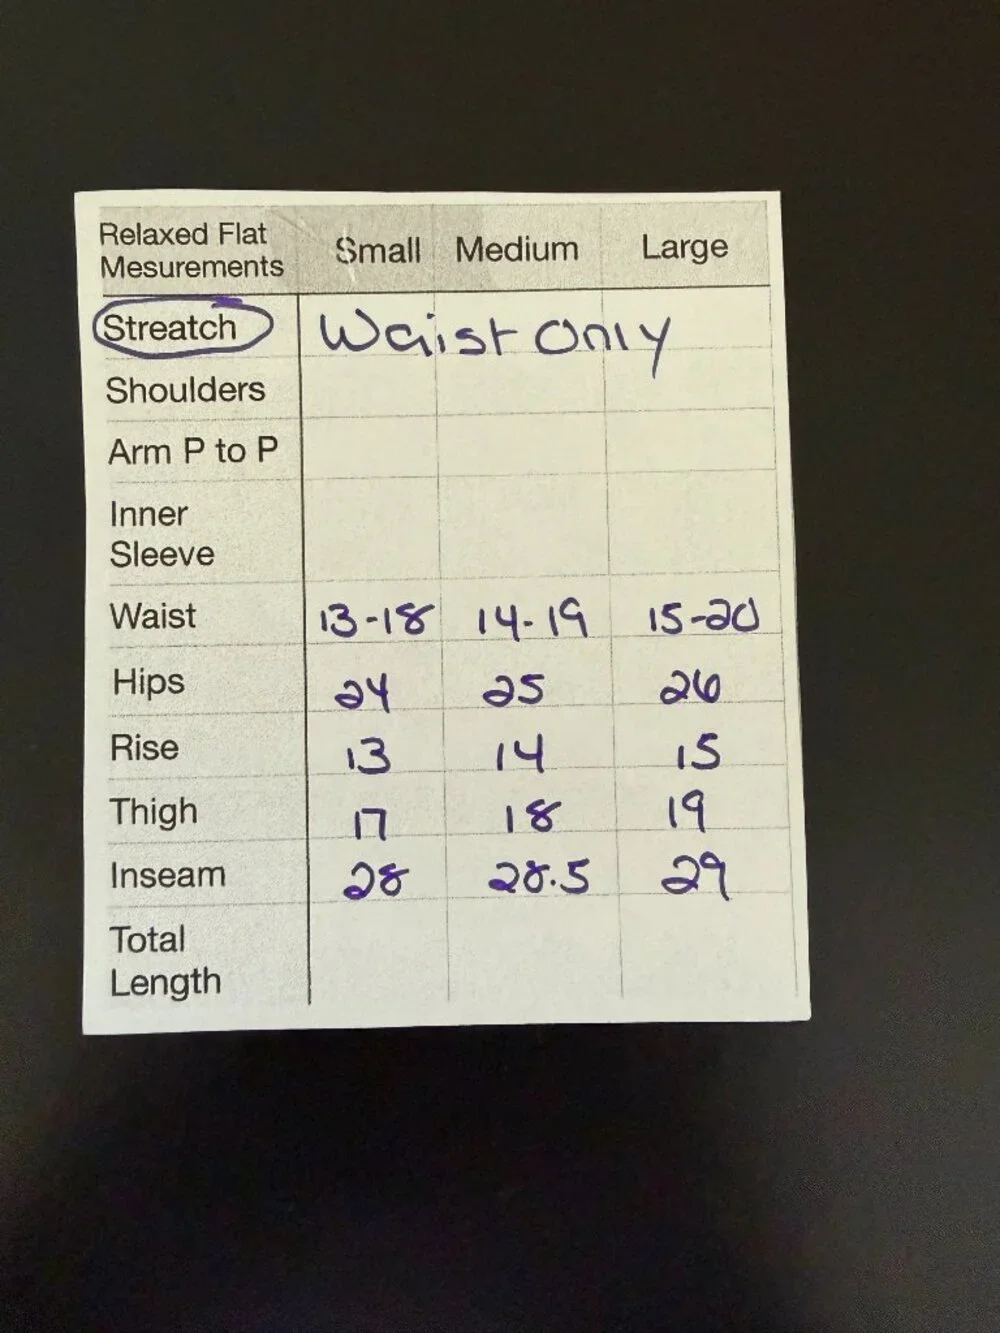 Relaxed Flat Mesurements Small Medium Large
Streatch Waist Only
Shoulders
Arm P to P
Inner Sleeve
Waist 13-18 14-19 15-20
Hips 24 25 26
Rise 13 14 15
Thigh 17 18 19
Inseam 28 28.5 29
Total Length